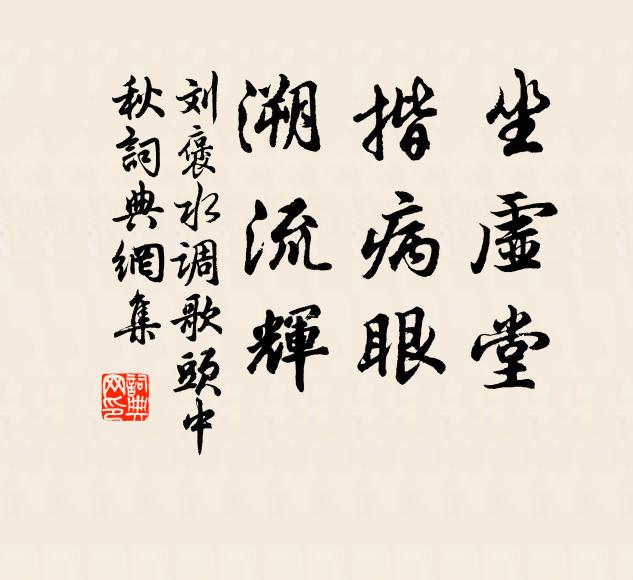 坐虛堂
揩病眼
溯流輝
刘褒水调歌頭中
秋詞典網集
詞典
网印